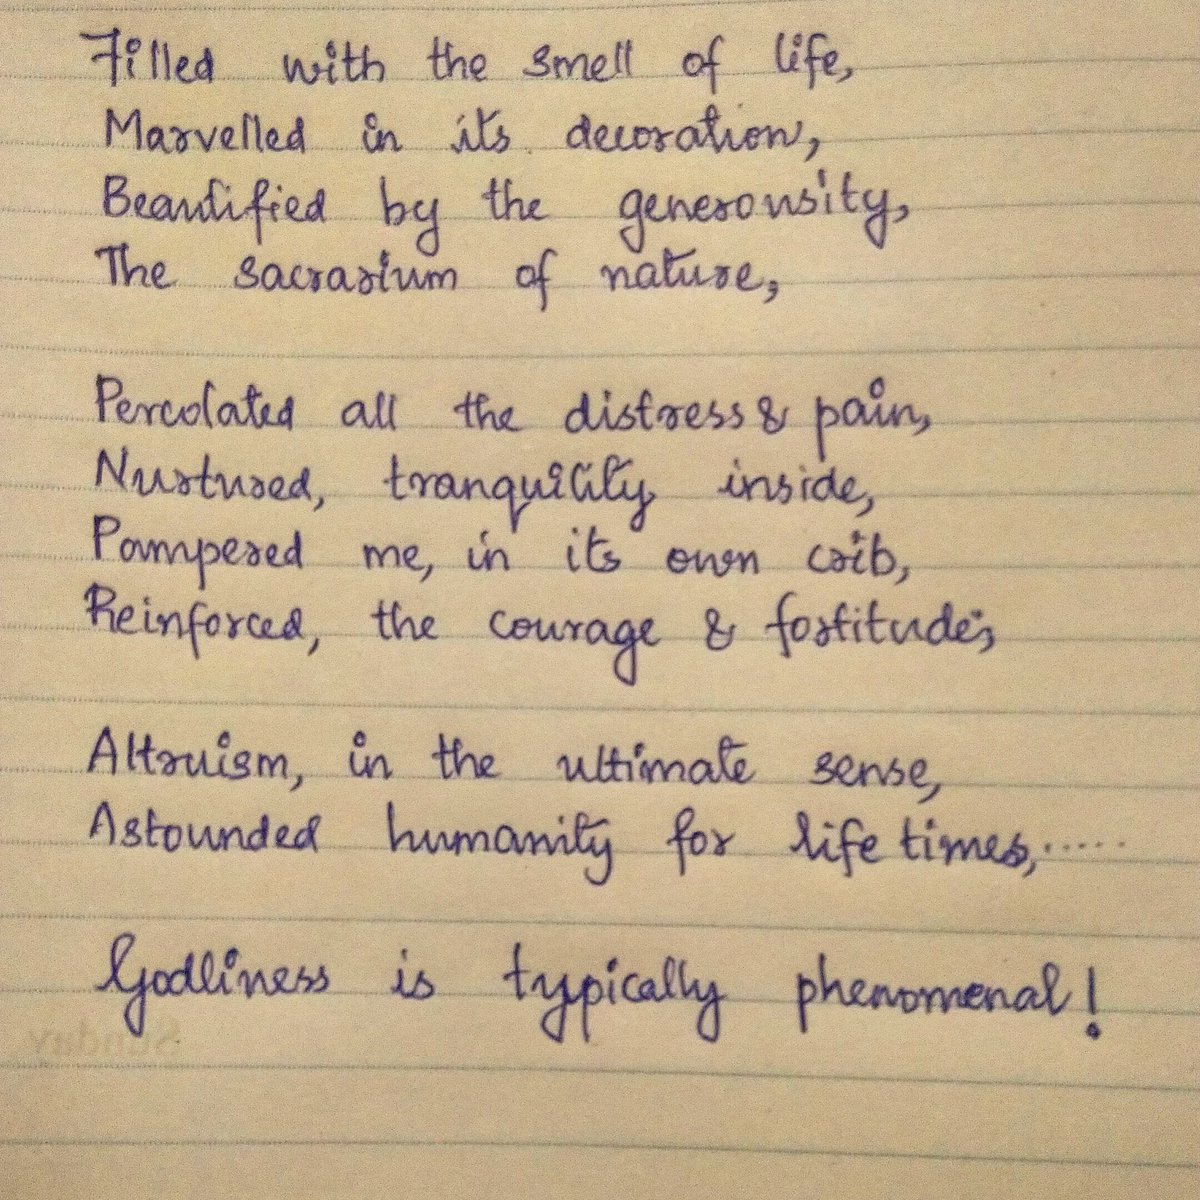 Filled with the smell of life,
Marvelled in its decoration,
Beautified by the generousity,
The sacrarium of nature,
Percolated all the distress & pain,
Nurtured, tranquility inside,
Pampered me, in its own crib,
Reinforced, the courage & fortitude;
Altruism, in the ultimate sense,
Astounded humanity for life times,.....
Godliness is typically phenomenal!
Sunday